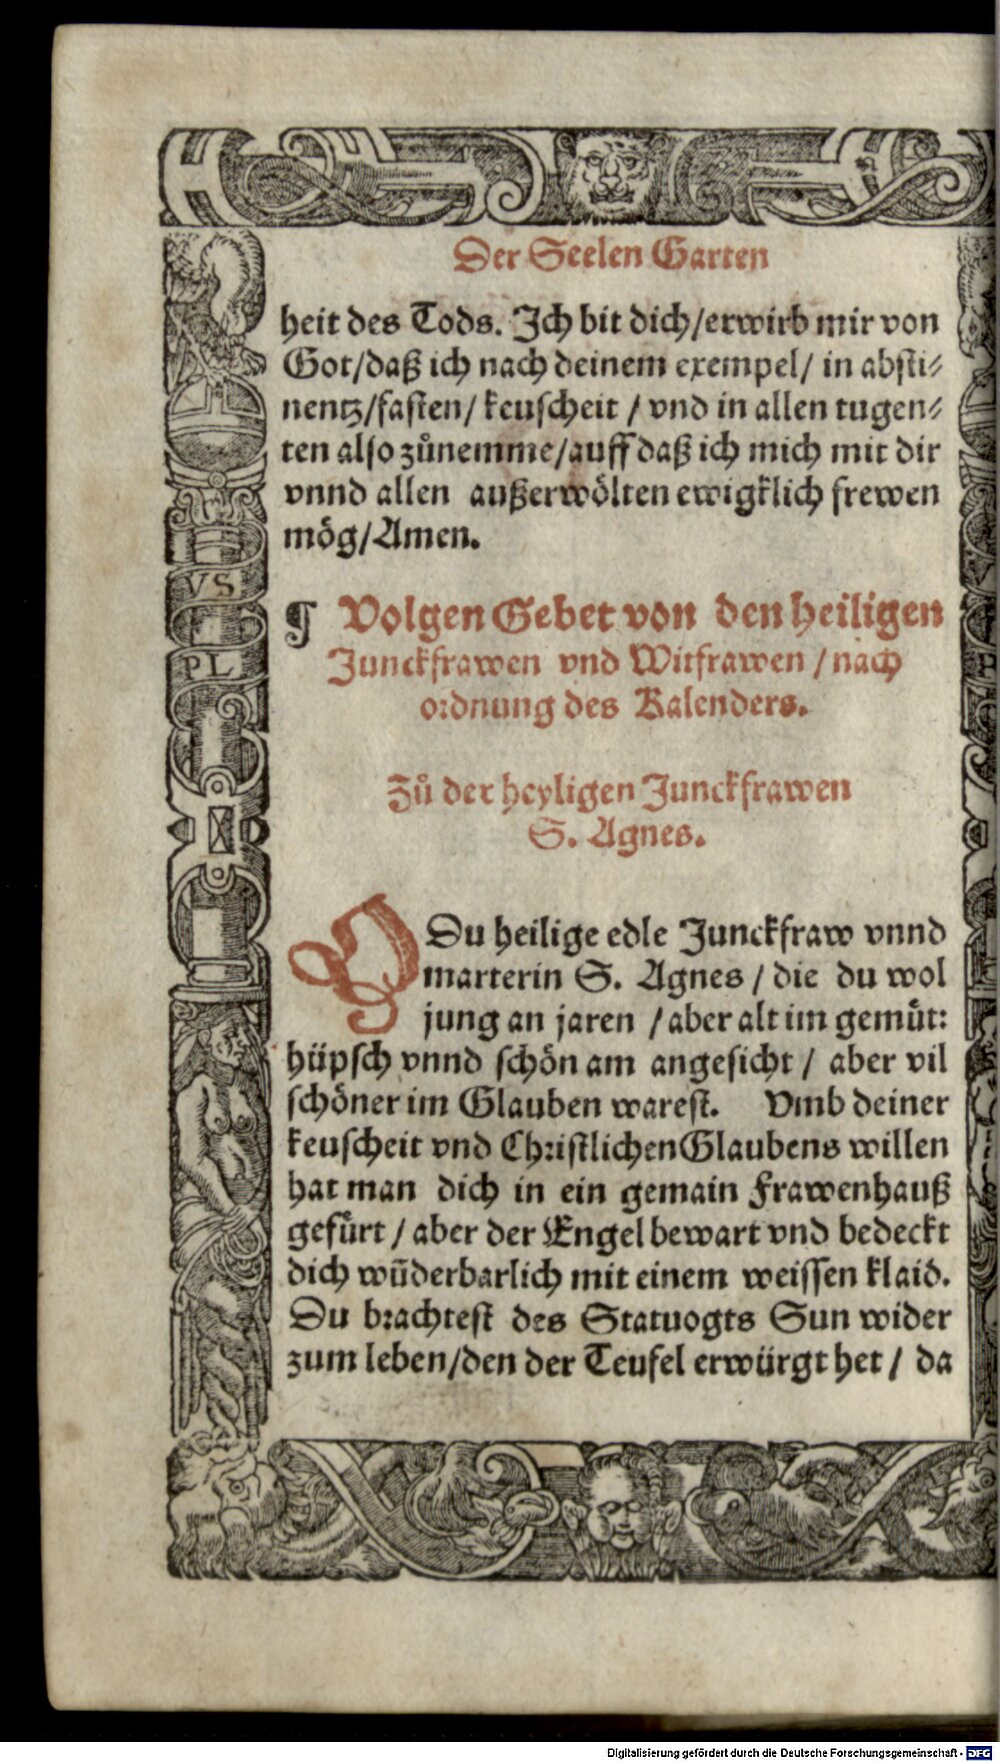 Der Seelen Garten
heit des Tods. Ich bit dich/erwirb mir von
Got/daß ich nach deinem exempel/ in absti⸗
nentz/fasten/ keuscheit / vnd in allen tugen⸗
ten also zůnemme/auff daß ich mich mit dir
vnnd allen außerwölten ewigklich frewen
mög/Amen.
VS
PL
¶ Volgen Gebet von den heiligen
Junckfrawen vnd Witfrawen / nach
ordnung des Kalenders.
Zů der heyligen Junckfrawen
S. Agnes.
O Du heilige edle Junckfraw vnnd
marterin S. Agnes / die du wol
jung an jaren / aber alt im gemůt:
hüpsch vnnd schön am angesicht / aber vil
schöner im Glauben warest. Vmb deiner
keuscheit vnd Christlichen Glaubens willen
hat man dich in ein gemain Frawenhauß
gefůrt / aber der Engel bewart vnd bedeckt
dich wūderbarlich mit einem weissen klaid.
Du brachtest des Statuogts Sun wider
zum leben/den der Teufel erwürgt het / da
Digitalisierung gefördert durch die Deutsche Forschungsgemeinschaft - DFG